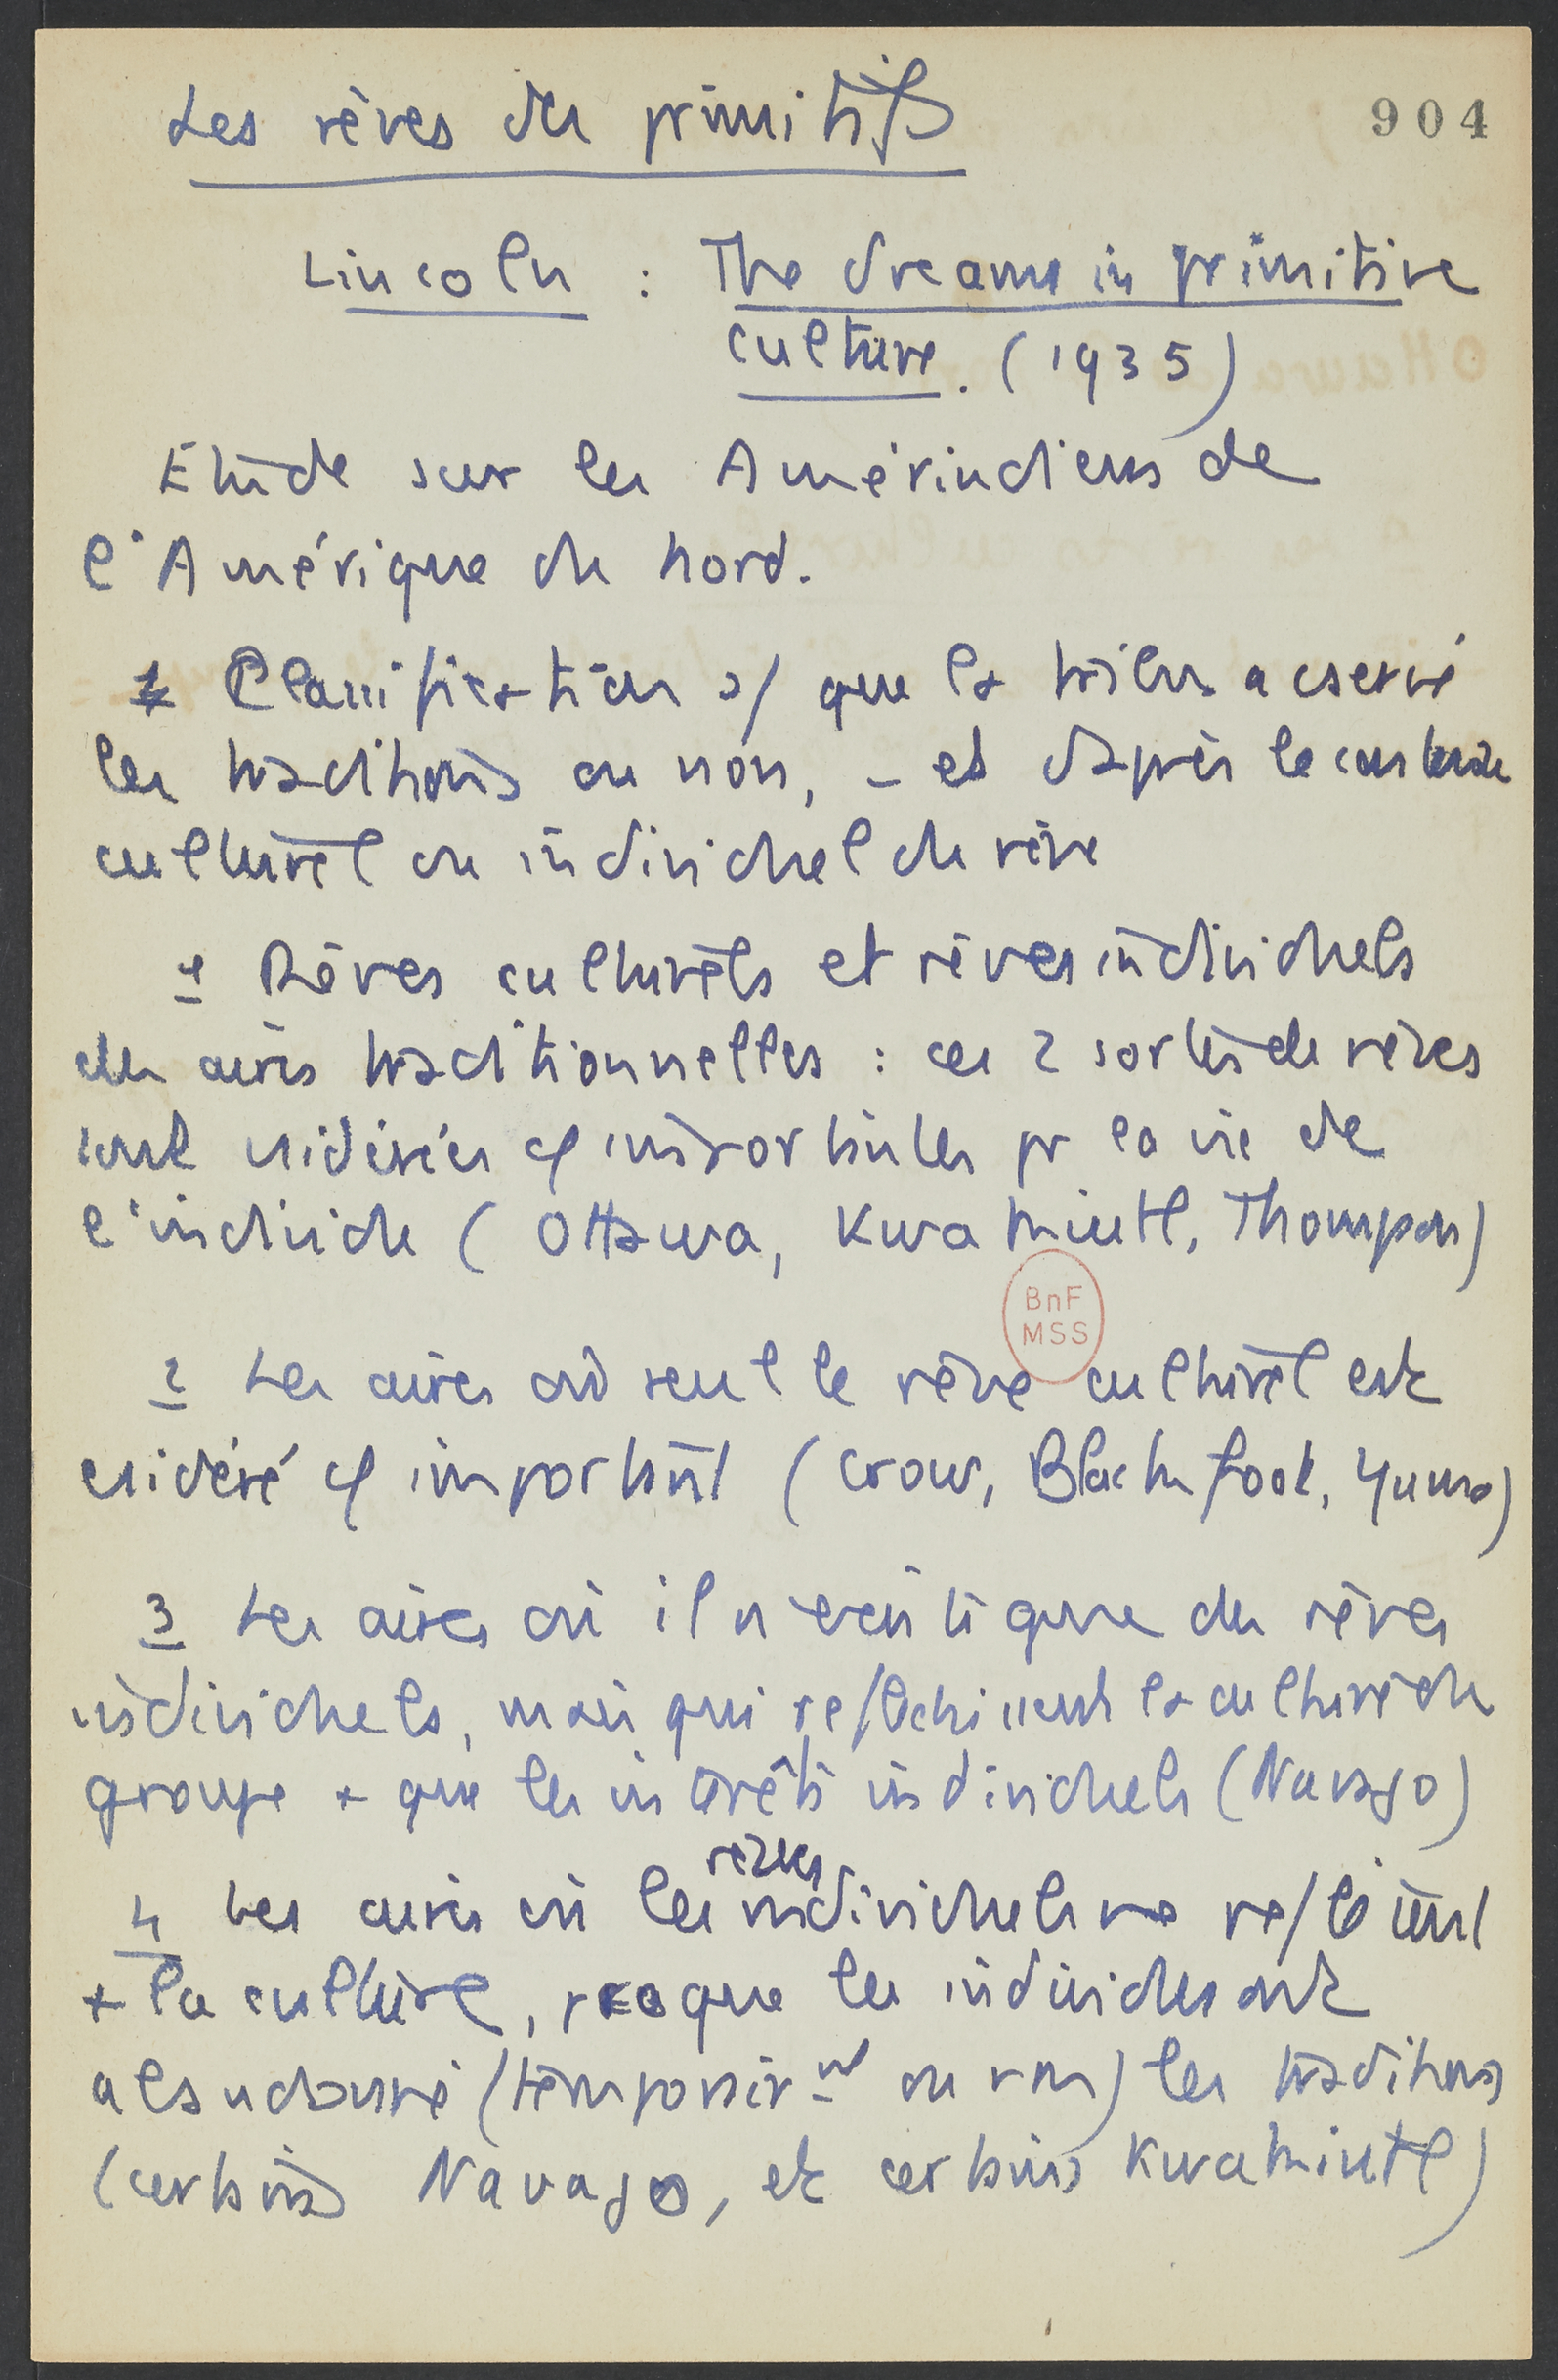 Les rêves des primitifs
904
Lincoln : The dreams in primitive
culture. (1935)
Etude sur les Amérindiens de
l'Amérique du Nord.
Classification s/ que la tribu a cservé
les traditions ou non, - et d'après le contenu
culturel ou individuel du rêve
1 Rêves culturels et rêves individuels
des aires traditionnelles : ces 2 sortes de rêves
sont csidérées cô importantes pr la vie de
l'individu (Ottawa, Kwakiutl, Thompson)
BnF
MSS
2 Les aires où seul le rêve culturel est
csidéré cô important (Crow, Blackfoot, Yuma)
3 Les aires où il n'existe que des rêves
individuels, mais qui réfléchissent la culture du
groupe + que les intérêts individuels (Navajo)
4 Les aires où les rêves individuels ne reflètent
+ la culture, pcq que les individus ont
abandonné (temporairnt ou non) les traditions
(certains Navajos, et certains Kwakiutl)